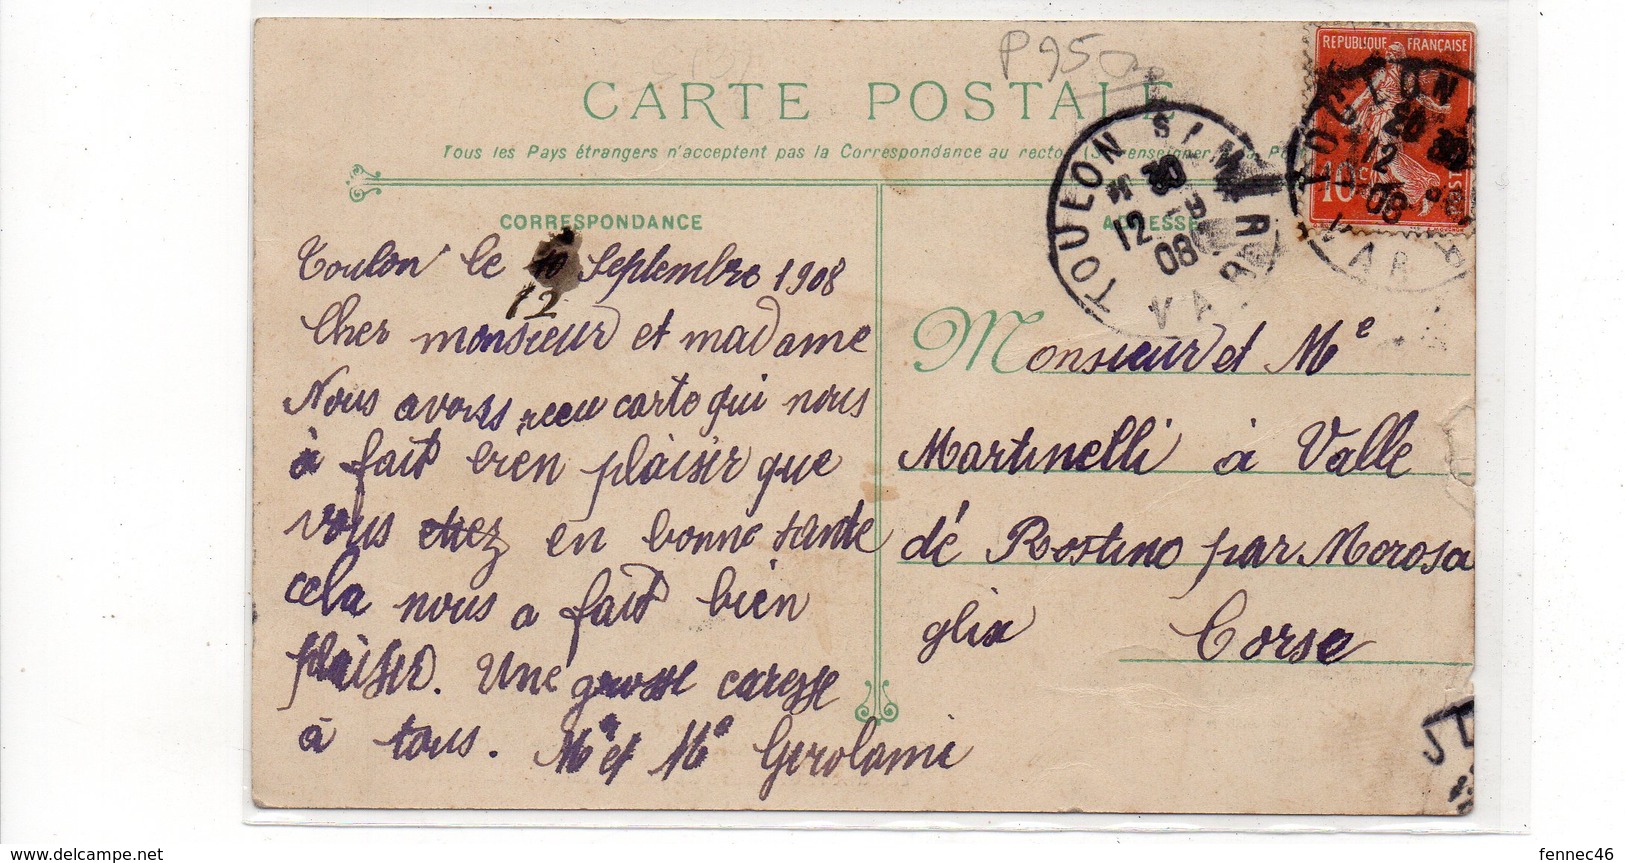 P950
CARTE POSTALE
Tous les Pays étrangers n'acceptent pas la Correspondance au recto
CORRESPONDANCE
ADRESSE
REPUBLIQUE FRANÇAISE
10c
TOULON S/ MER
12 -9
08
VAR
TOULON
20 30
12 -9
08
VAR
Toulon le 10 Septembre 1908
12
Cher monsieur et madame
Nous avons recu carte qui nous
à fait erén plaisir que
vous etiez en bonne sante
cela nous a fait bien
plaisir. Une grosse caresse
à tous. Mr et Me Gerolami
Monsieur et Me
Martinelli à Valle
dé Rostino par Morosa
glia Corse
fennec46